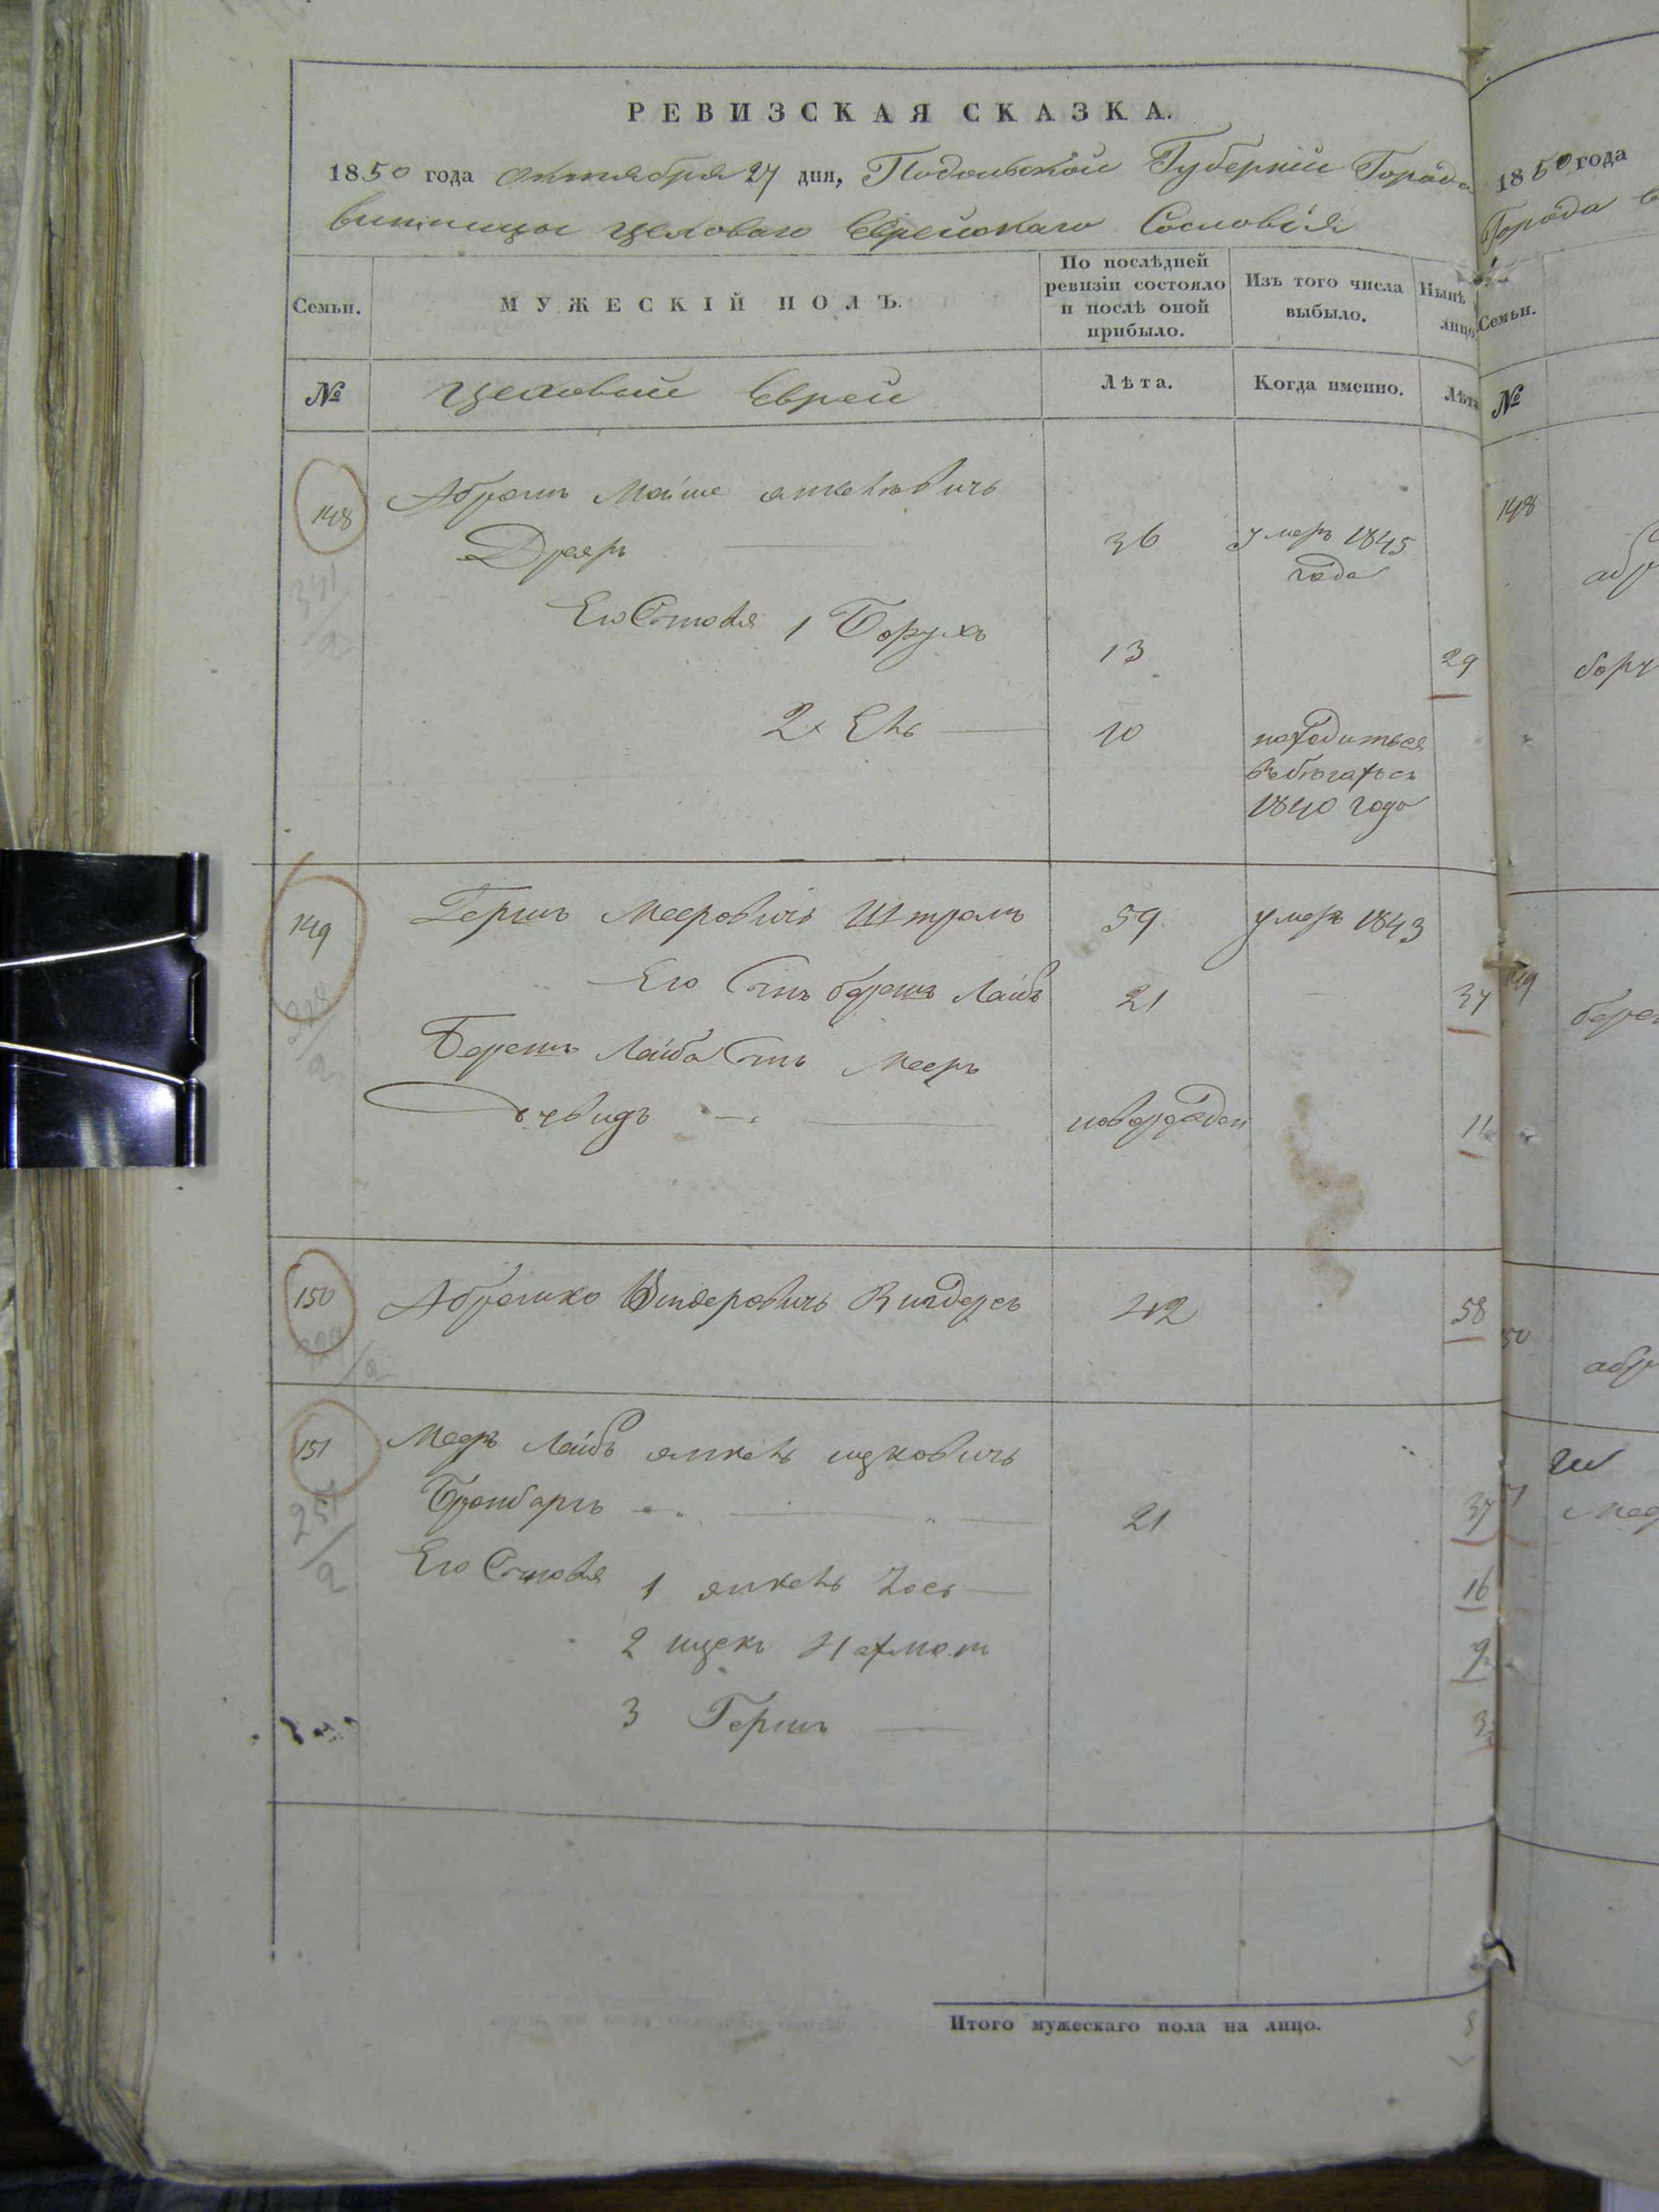 РЕВИЗСКАЯ СКАЗКА.
1850 года октября 27 дня, Подольской Губерніи Города
Винницы Цеховаго Еврейскаго Сословія
Семьи.
МУЖЕСКІЙ ПОЛЪ.
По послѣдней
ревизіи состояло
и послѣ оной
прибыло.
Изъ того числа
выбыло.
Нынѣ
лицо
№
Цеховыи Евреи
Лѣта.
Когда именно.
Лѣта
148
Абрамъ Мойше
36 умеръ 1845
года
Его Сыновья 1 Борухъ
13 29
2й 10 находиться
въ бѣгахъ съ
1840 года
149 Гершъ Мееровичъ Штрамъ 59 умеръ 1843
Его Сынъ Берешъ Лейбъ 21 37
Берешъ Лейба Сынъ Мееръ
новорожден 11
150 Абрамко 42 58
151 Мееръ Лейбъ Янкель Ицковичъ
21 37
Его Сыновья 1 Янкель Іось 16
2 Ицекъ Нахман 9
3 Гершъ 3
Итого мужескаго пола на лицо. 8
1850 года
Города
Семьи.
№
148